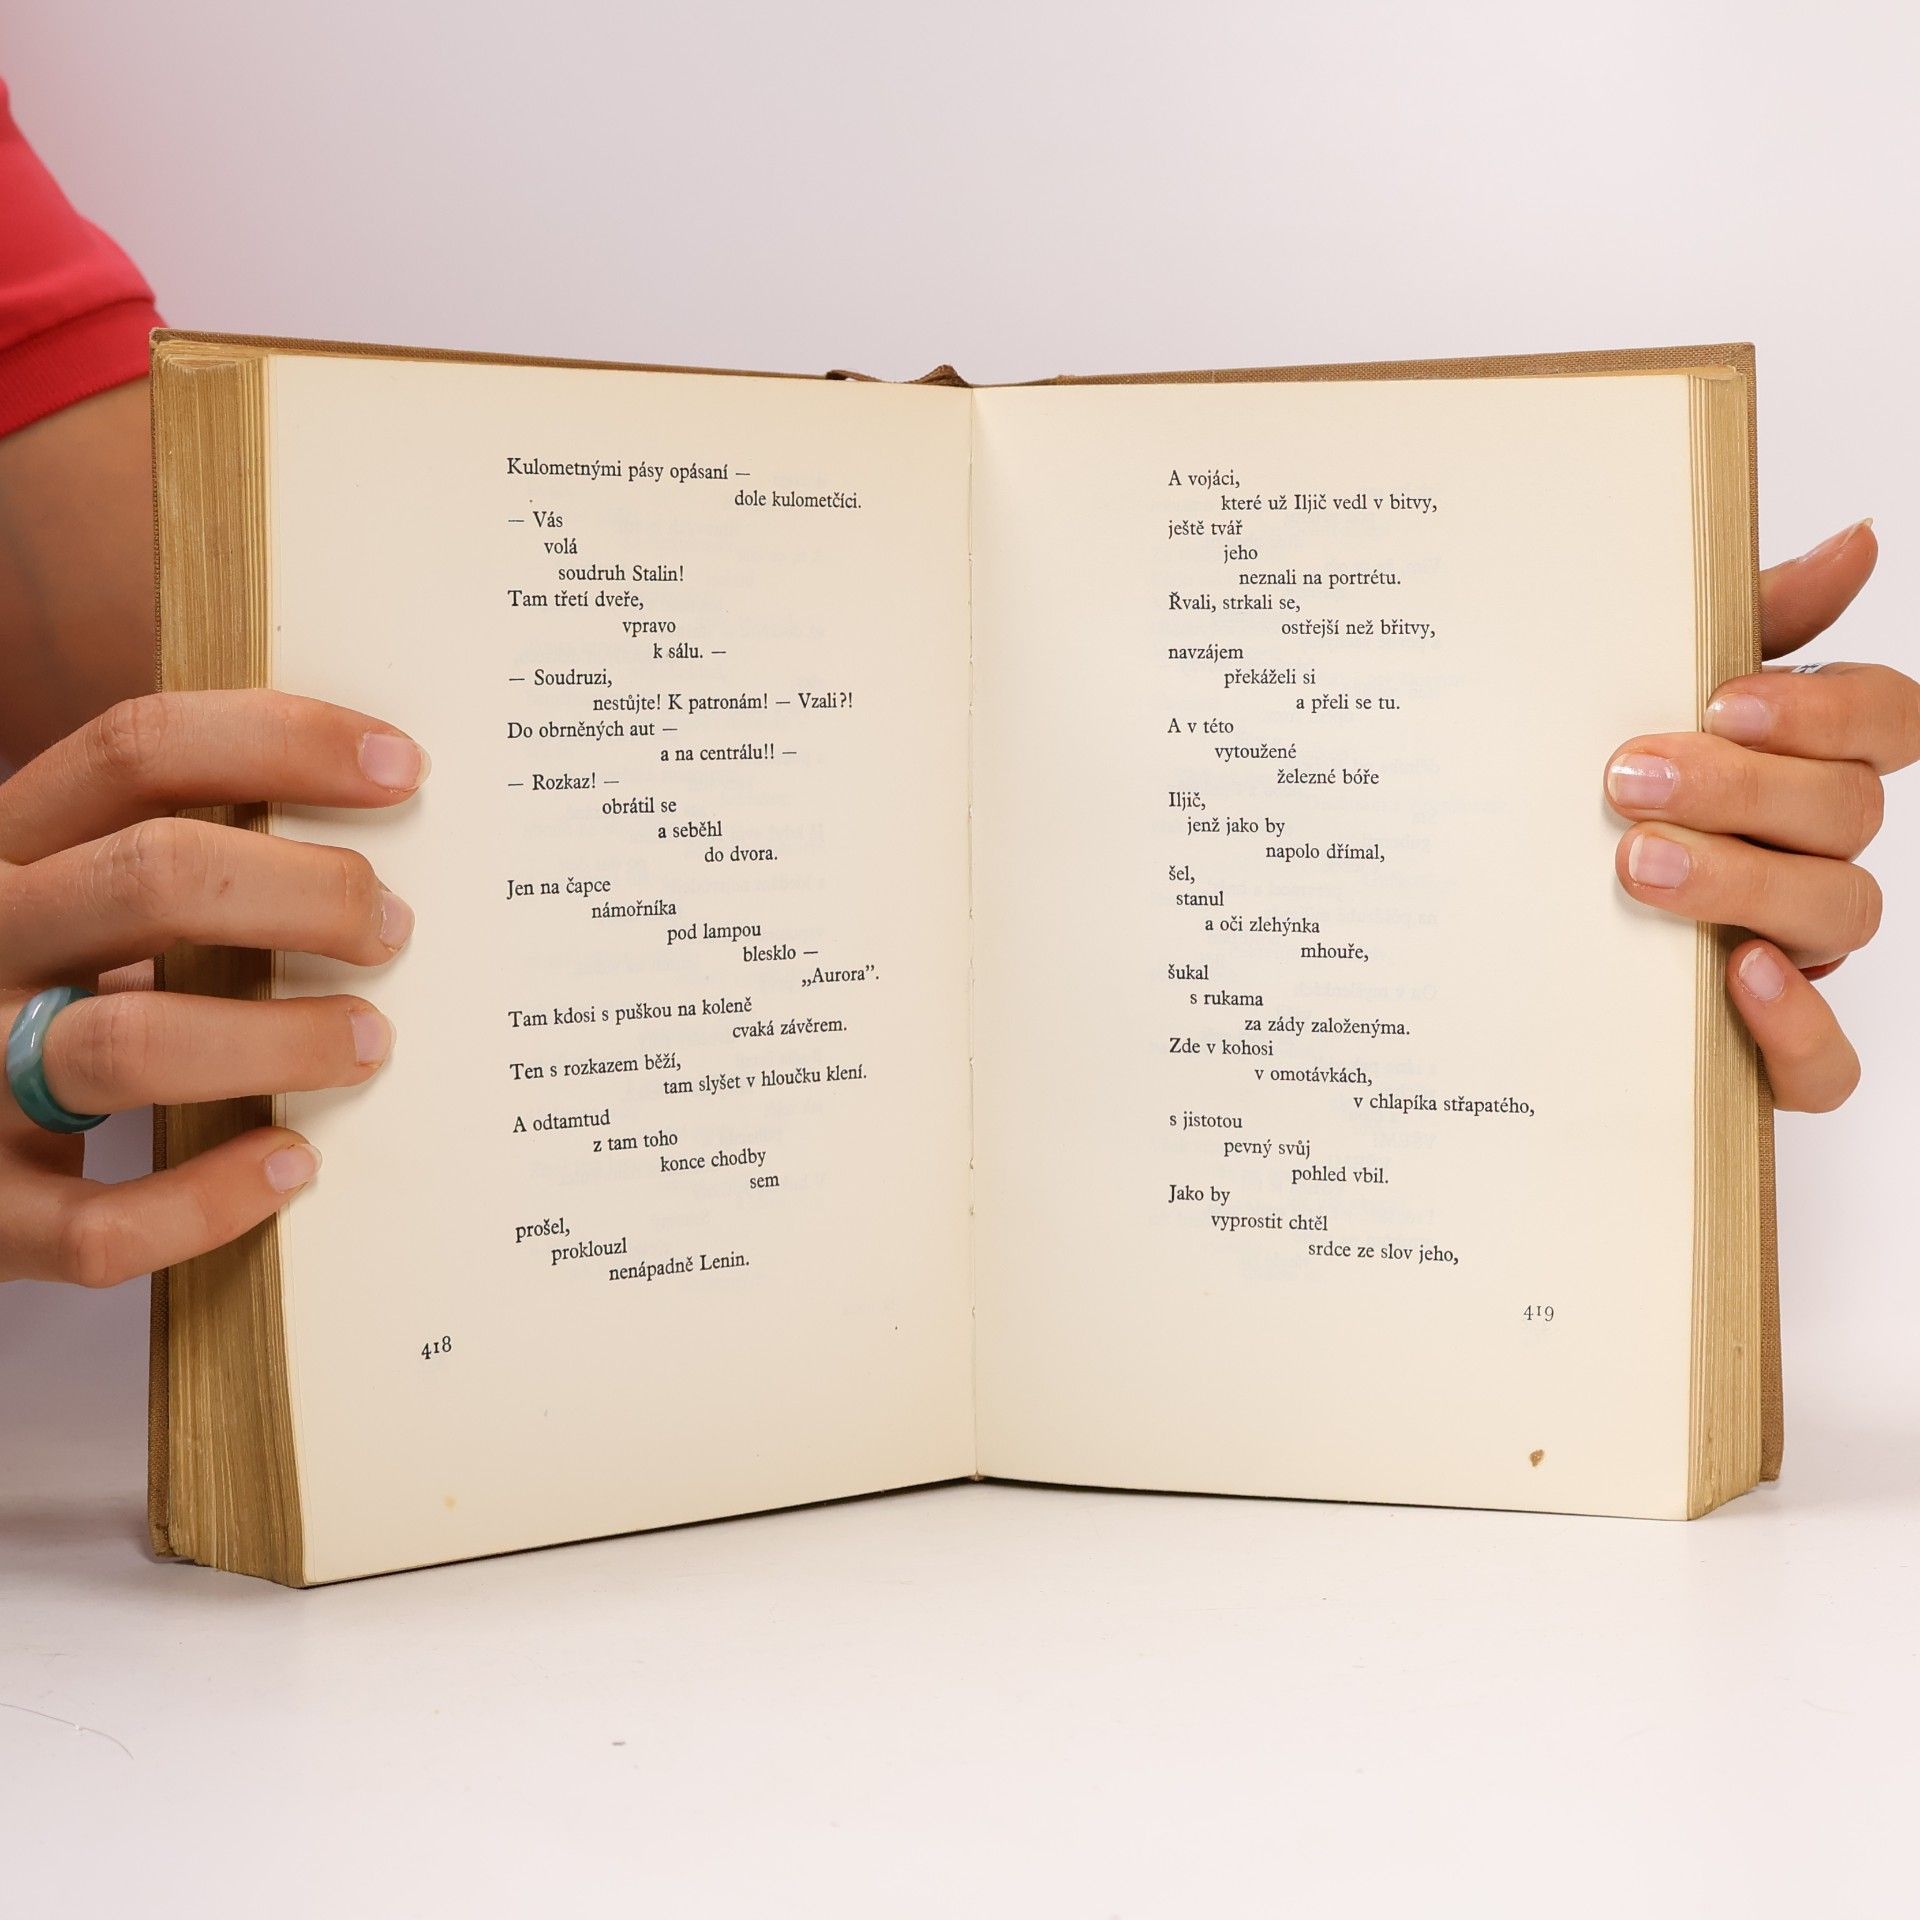 Kulometnými pásy opásaní —
dole kulometčíci.
— Vás
volá
soudruh Stalin!
Tam třetí dveře,
vpravo
k sálu. —
— Soudruzi,
nestůjte! K patronám! — Vzali?!
Do obrněných aut —
a na centrálu!! —
— Rozkaz! —
obrátil se
a seběhl
do dvora.
Jen na čapce
námořníka
pod lampou
blesklo —
„Aurora”.
Tam kdosi s puškou na koleně
cvaká závěrem.
Ten s rozkazem běží,
tam slyšet v hloučku klení.
A odtamtud
z tam toho
konce chodby
sem
prošel,
proklouzl
nenápadně Lenin.
418
A vojáci,
které už Iljič vedl v bitvy,
ještě tvář
jeho
neznali na portrétu.
Řvali, strkali se,
ostřejší než břitvy,
navzájem
překáželi si
a přeli se tu.
A v této
vytoužené
železné bóře
Iljič,
jenž jako by
napolo dřímal,
šel,
stanul
a oči zlehýnka
mhouře,
šukal
s rukama
za zády založenýma.
Zde v kohosi
v omotávkách,
v chlapíka střapatého,
s jistotou
pevný svůj
pohled vbil.
Jako by
vyprostit chtěl
srdce ze slov jeho,
419